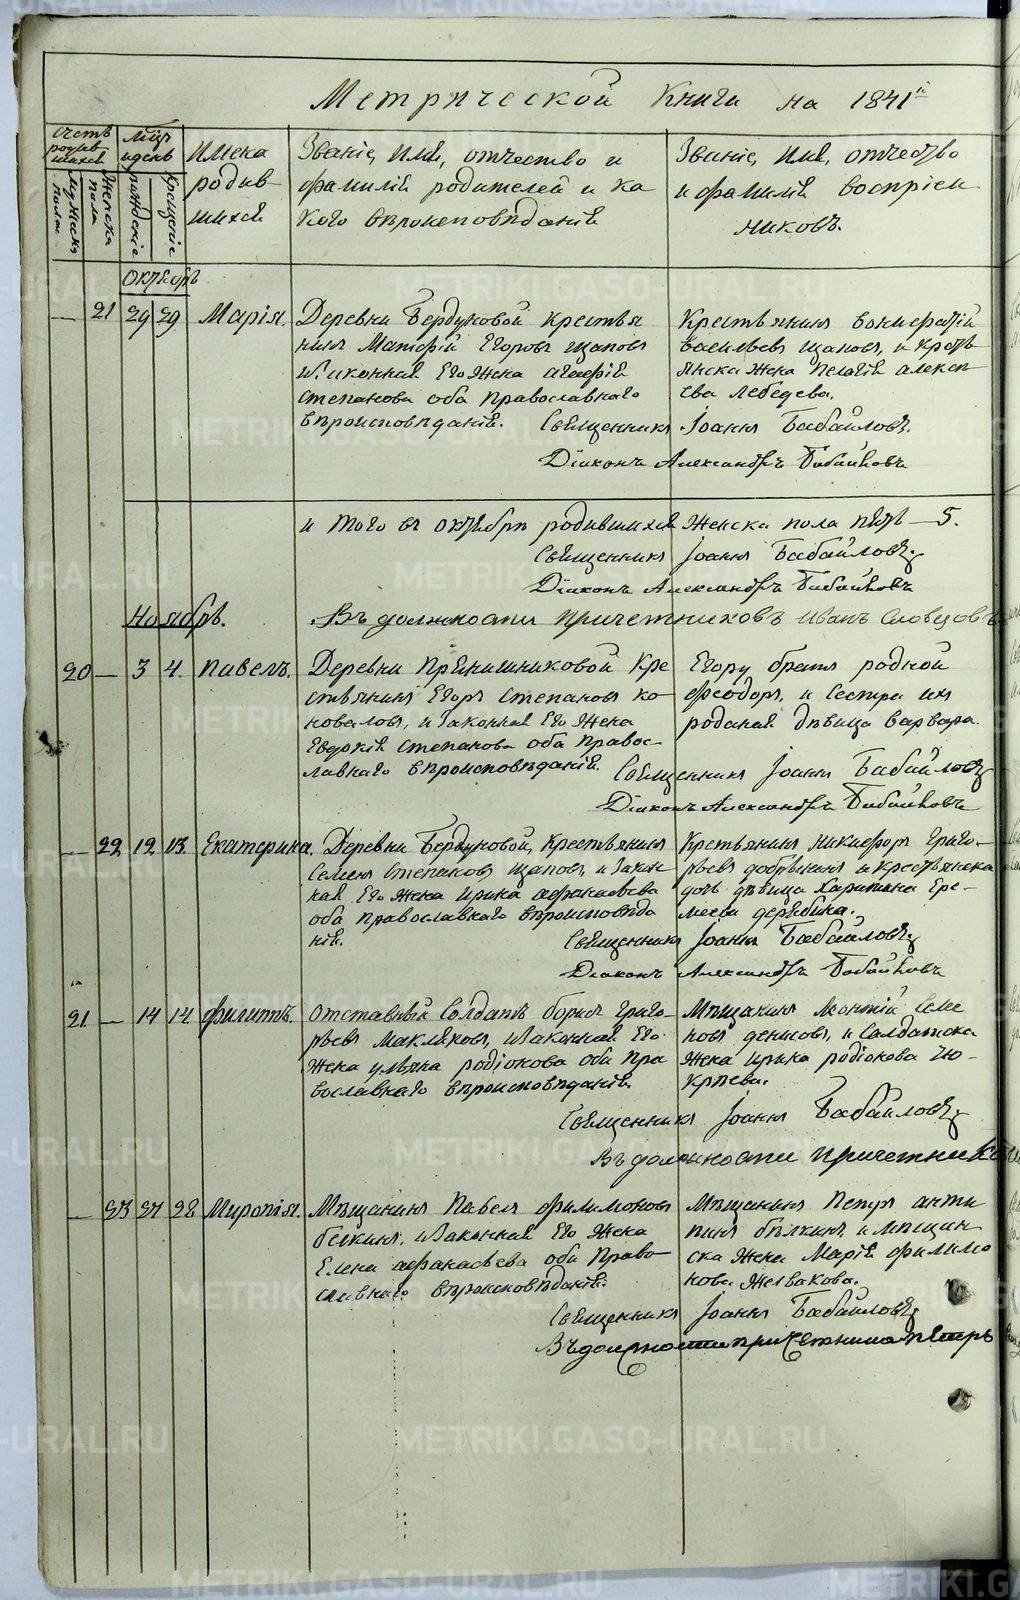 Метрической Книги на 1841й
Счетъ родив-шихся
Мужска пола
Женска пола
Мѣсяцъ и день
рожденіе
крещеніе
Имена родив-шихся
Званіе, Имя, отчество и фамилія родителей и ка-кого вѣроисповѣданія
Званіе, Имя, отчество и фамилія воспріем-никовъ.
Октябрь
— 21 29 29 Марія.
Деревни Бердюковой крестья
нинъ Матфій Егоровъ Щаповъ
и законная его жена Агафія
Степанова оба православнаго
вѣроисповѣданія.
Крестьянинъ Вонифатій
Васильевъ Щаповъ, и кресть
янска жена Пелагія Алексѣ
ева Лебедева.
Священникъ Іоаннъ Бабайловъ.
Діаконъ Александръ Бабайковъ
и того въ октябрѣ родившихся женска пола пять — 5.
Священникъ Іоаннъ Бабайловъ
Діаконъ Александръ Бабайковъ
Ноябрь.
Въ должности причетниковъ Иванъ Словцовъ
20 — 3 4. Павелъ.
Деревни Прянишниковой кре
стьянинъ Егоръ Степановъ ко
новаловъ, и законная его жена
Евдокія Степанова оба правос-
лавнаго вѣроисповѣданія.
Егору братъ родной
Феодоръ, и сестра ихъ
родная дѣвица Варвара.
Священникъ Іоаннъ Бабайловъ
Діаконъ Александръ Бабайковъ
— 22 12 13. Екатерина.
Деревни Бердюковой, крестьянинъ
Семенъ Степановъ Щаповъ, и закон
ная его жена Ирина Афанасьева
оба православнаго вѣроисповѣда
нія.
Крестьянинъ Никифоръ Григо-
рьевъ Добрынинъ и крестьянска
дочь дѣвица Харитина Ере-
меева Дерябина.
Священникъ Іоаннъ Бабайловъ
Діаконъ Александръ Бабайковъ
21 — 14 14. Филиппъ.
Отставный Солдатъ Борисъ Григо-
рьевъ Макляковъ, и законная его
жена Ульяна Родіонова оба пра
вославнаго вѣроисповѣданія.
Мѣщанинъ Леонтій Семе
новъ Денисовъ, и солдатска
жена Ирина Родіонова
Священникъ Іоаннъ Бабайловъ
Въ должности причетника
— 23 27 28 Миропія.
Мѣщанинъ Павелъ Филимоновъ
Бѣлкинъ, и законная его жена
Елена Афанасьева оба право
славнаго вѣроисповѣданія.
Мѣщанинъ Петръ Анти
пинъ Бѣлкинъ, и мѣщан-
ска жена Марія Филимо
нова Желвакова.
Священникъ Іоаннъ Бабайловъ
Въ должности причетника Петръ
METRIKI.GASO-URAL.RU